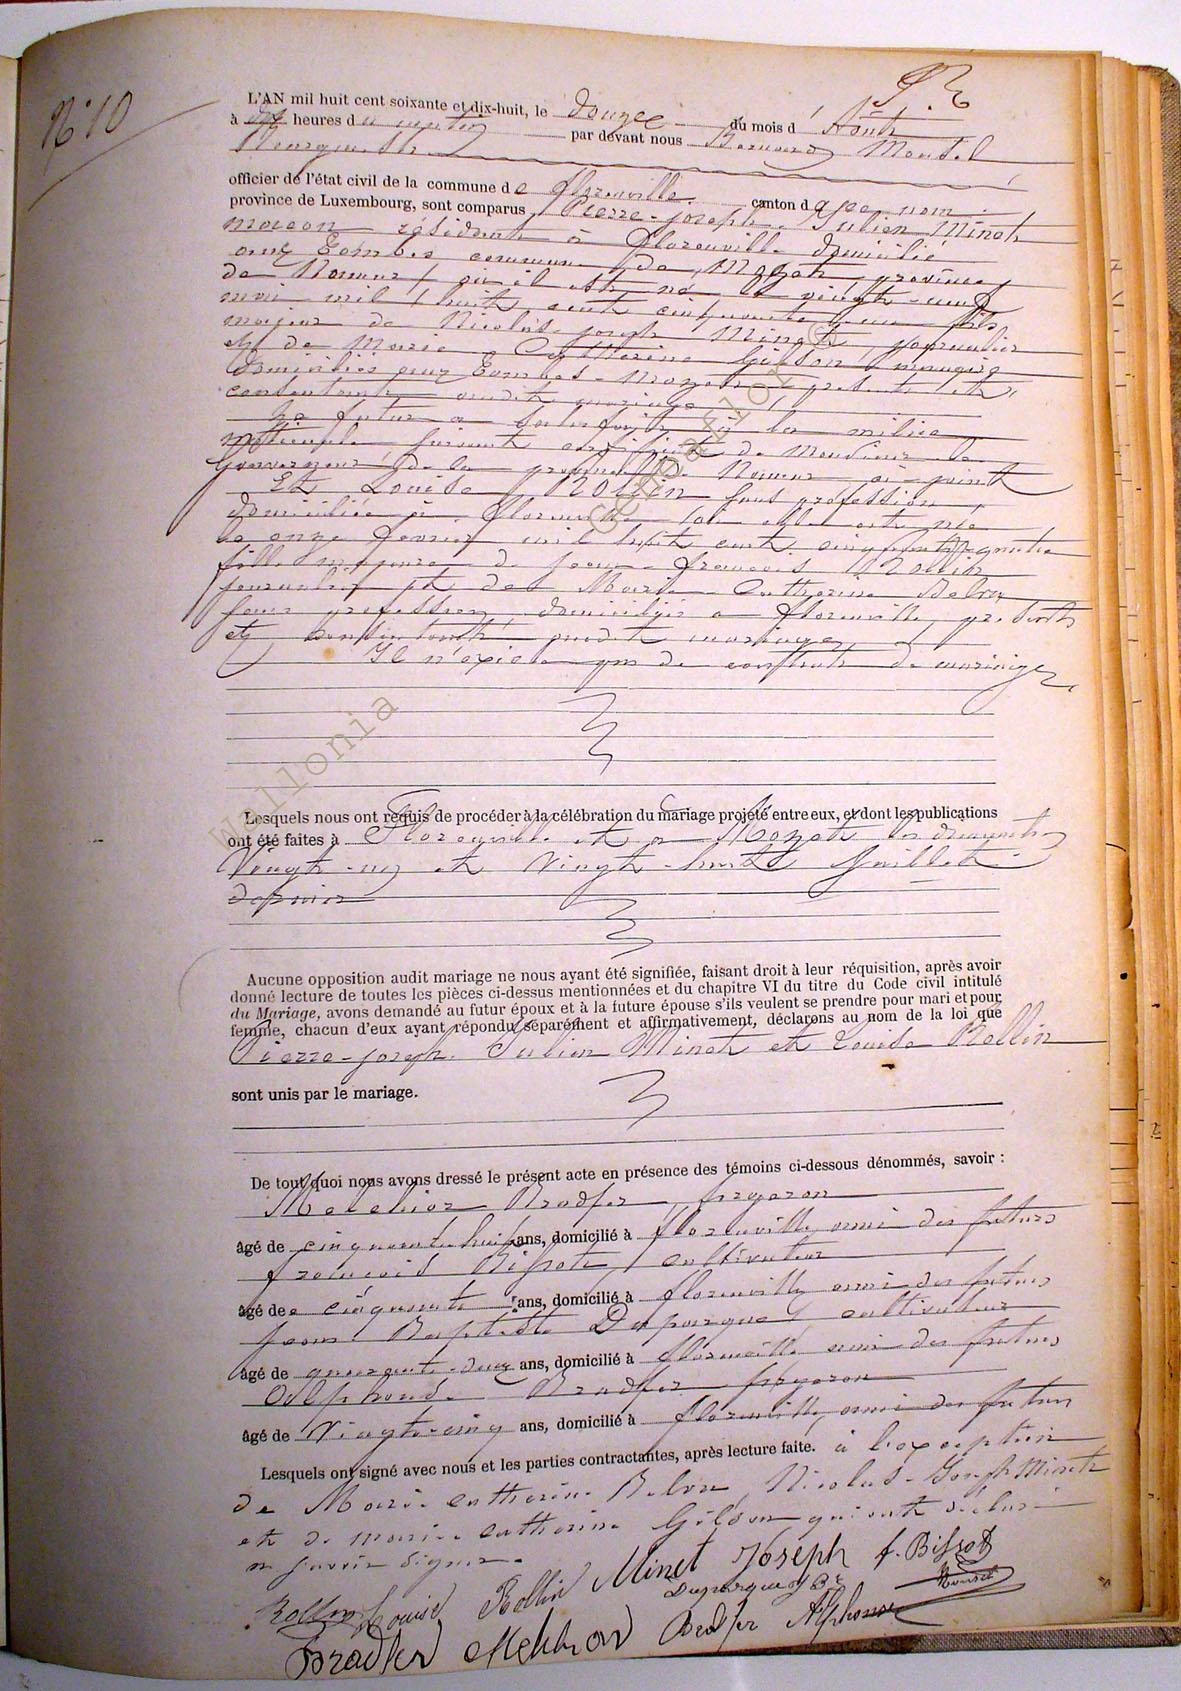 N° 10
L'AN mil huit cent soixante et dix-huit, le douze du mois d'Août
à dix heures du matin par devant nous Bernard Montel
Bourgmestre
officier de l'état civil de la commune de Florenville canton d
province de Luxembourg, sont comparus Pierre-Joseph Julien Minet
maçon résidant à Florenville domicilié
aux Tombes commune de Mozet province
de Namur, où il est né le vingt-
mai mil huit cent cinquante fils
majeur de Nicolas-Joseph Minet, journalier
et de Marie Catherine Gilson ménagère
domiciliés aux Tombes-Mozet présents et
consentants audit mariage
Le futur a satisfait à la milice
nationale suivant certificat de Monsieur le
Gouverneur de la province de Namur ci-joint
Et Louise Rollin sans profession
domiciliée à Florenville où elle est née
le onze février mil huit cent cinquante-quatre
fille majeure de Jean-François Rollin
journalier et de Marie Catherine
sans profession domiciliés à Florenville, présents
et consentants audit mariage
Il n'existe pas de contrat de mariage
Lesquels nous ont requis de procéder à la célébration du mariage projeté entre eux, et dont les publications
ont été faites à Florenville et à Mozet les dimanches
Vingt-un et Vingt-huit Juillet
dernier
Aucune opposition audit mariage ne nous ayant été signifiée, faisant droit à leur réquisition, après avoir
donné lecture de toutes les pièces ci-dessus mentionnées et du chapitre VI du titre du Code civil intitulé
du Mariage, avons demandé au futur époux et à la future épouse s'ils veulent se prendre pour mari et pour
femme, chacun d'eux ayant répondu séparément et affirmativement, déclarons au nom de la loi que
Pierre-Joseph Julien Minet et Louise Rollin
sont unis par le mariage.
De tout quoi nous avons dressé le présent acte en présence des témoins ci-dessous dénommés, savoir :
Melchior Bradfer, forgeron
âgé de cinquante huit ans, domicilié à Florenville ami des futurs
François Bissot, cultivateur
âgé de cinquante ans, domicilié à Florenville ami des futurs
Jean Baptiste Duparque, cultivateur
âgé de quarante-deux ans, domicilié à Florenville ami des futurs
Adelphonse Bradfer forgeron
âgé de Vingt-cinq ans, domicilié à Florenville, ami des futurs
Lesquels ont signé avec nous et les parties contractantes, après lecture faite. à l'exception
de Marie Catherine Nicolas-Joseph Minet
et de Marie Catherine Gilson qui ont déclaré
ne savoir signer.
Rollin Louise Rollin Minet Joseph f. Bissot
Duparque J Bte
Bradfer Melchior Bradfer Alphonse
Wallonia
Genbaflor